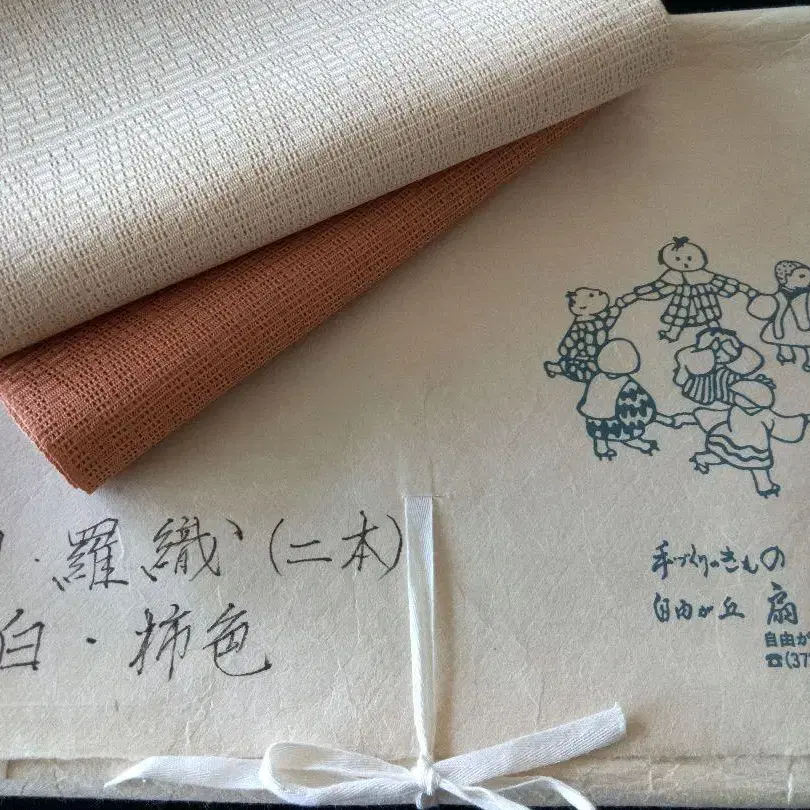 ・羅織(二本)
白・柿色
手づくりのきもの
自由が丘 扇
自由が
☎(37